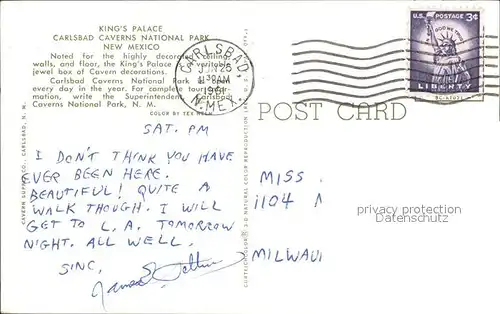 KING'S PALACE
CARLSBAD CAVERNS NATIONAL PARK
NEW MEXICO
Noted for the highly decorated ceiling,
walls, and floor, the King's Palace is a veritable
jewel box of Cavern decorations.
Carlsbad Caverns National Park is open
every day in the year. For complete tour infor-
mation, write the Superintendent, Carlsbad
Caverns National Park, N. M.
COLOR BY TEX HELM
CARLSBAD,
JUN 25
AM
1961
N. MEX.
U.S. POSTAGE 3¢
IN GOD WE TRUST
LIBERTY
POST CARD
SAT. PM
I DON'T THINK YOU HAVE
EVER BEEN HERE.
BEAUTIFUL! QUITE A
WALK THOUGH. I WILL
GET TO L.A. TOMORROW
NIGHT. ALL WELL.
SINC,
MISS
1104
MILWAU
privacy protection
Datenschutz
CAVERN SUPPLY CO., CARLSBAD, N. M.
NATURAL COLOR REPRODUCTION